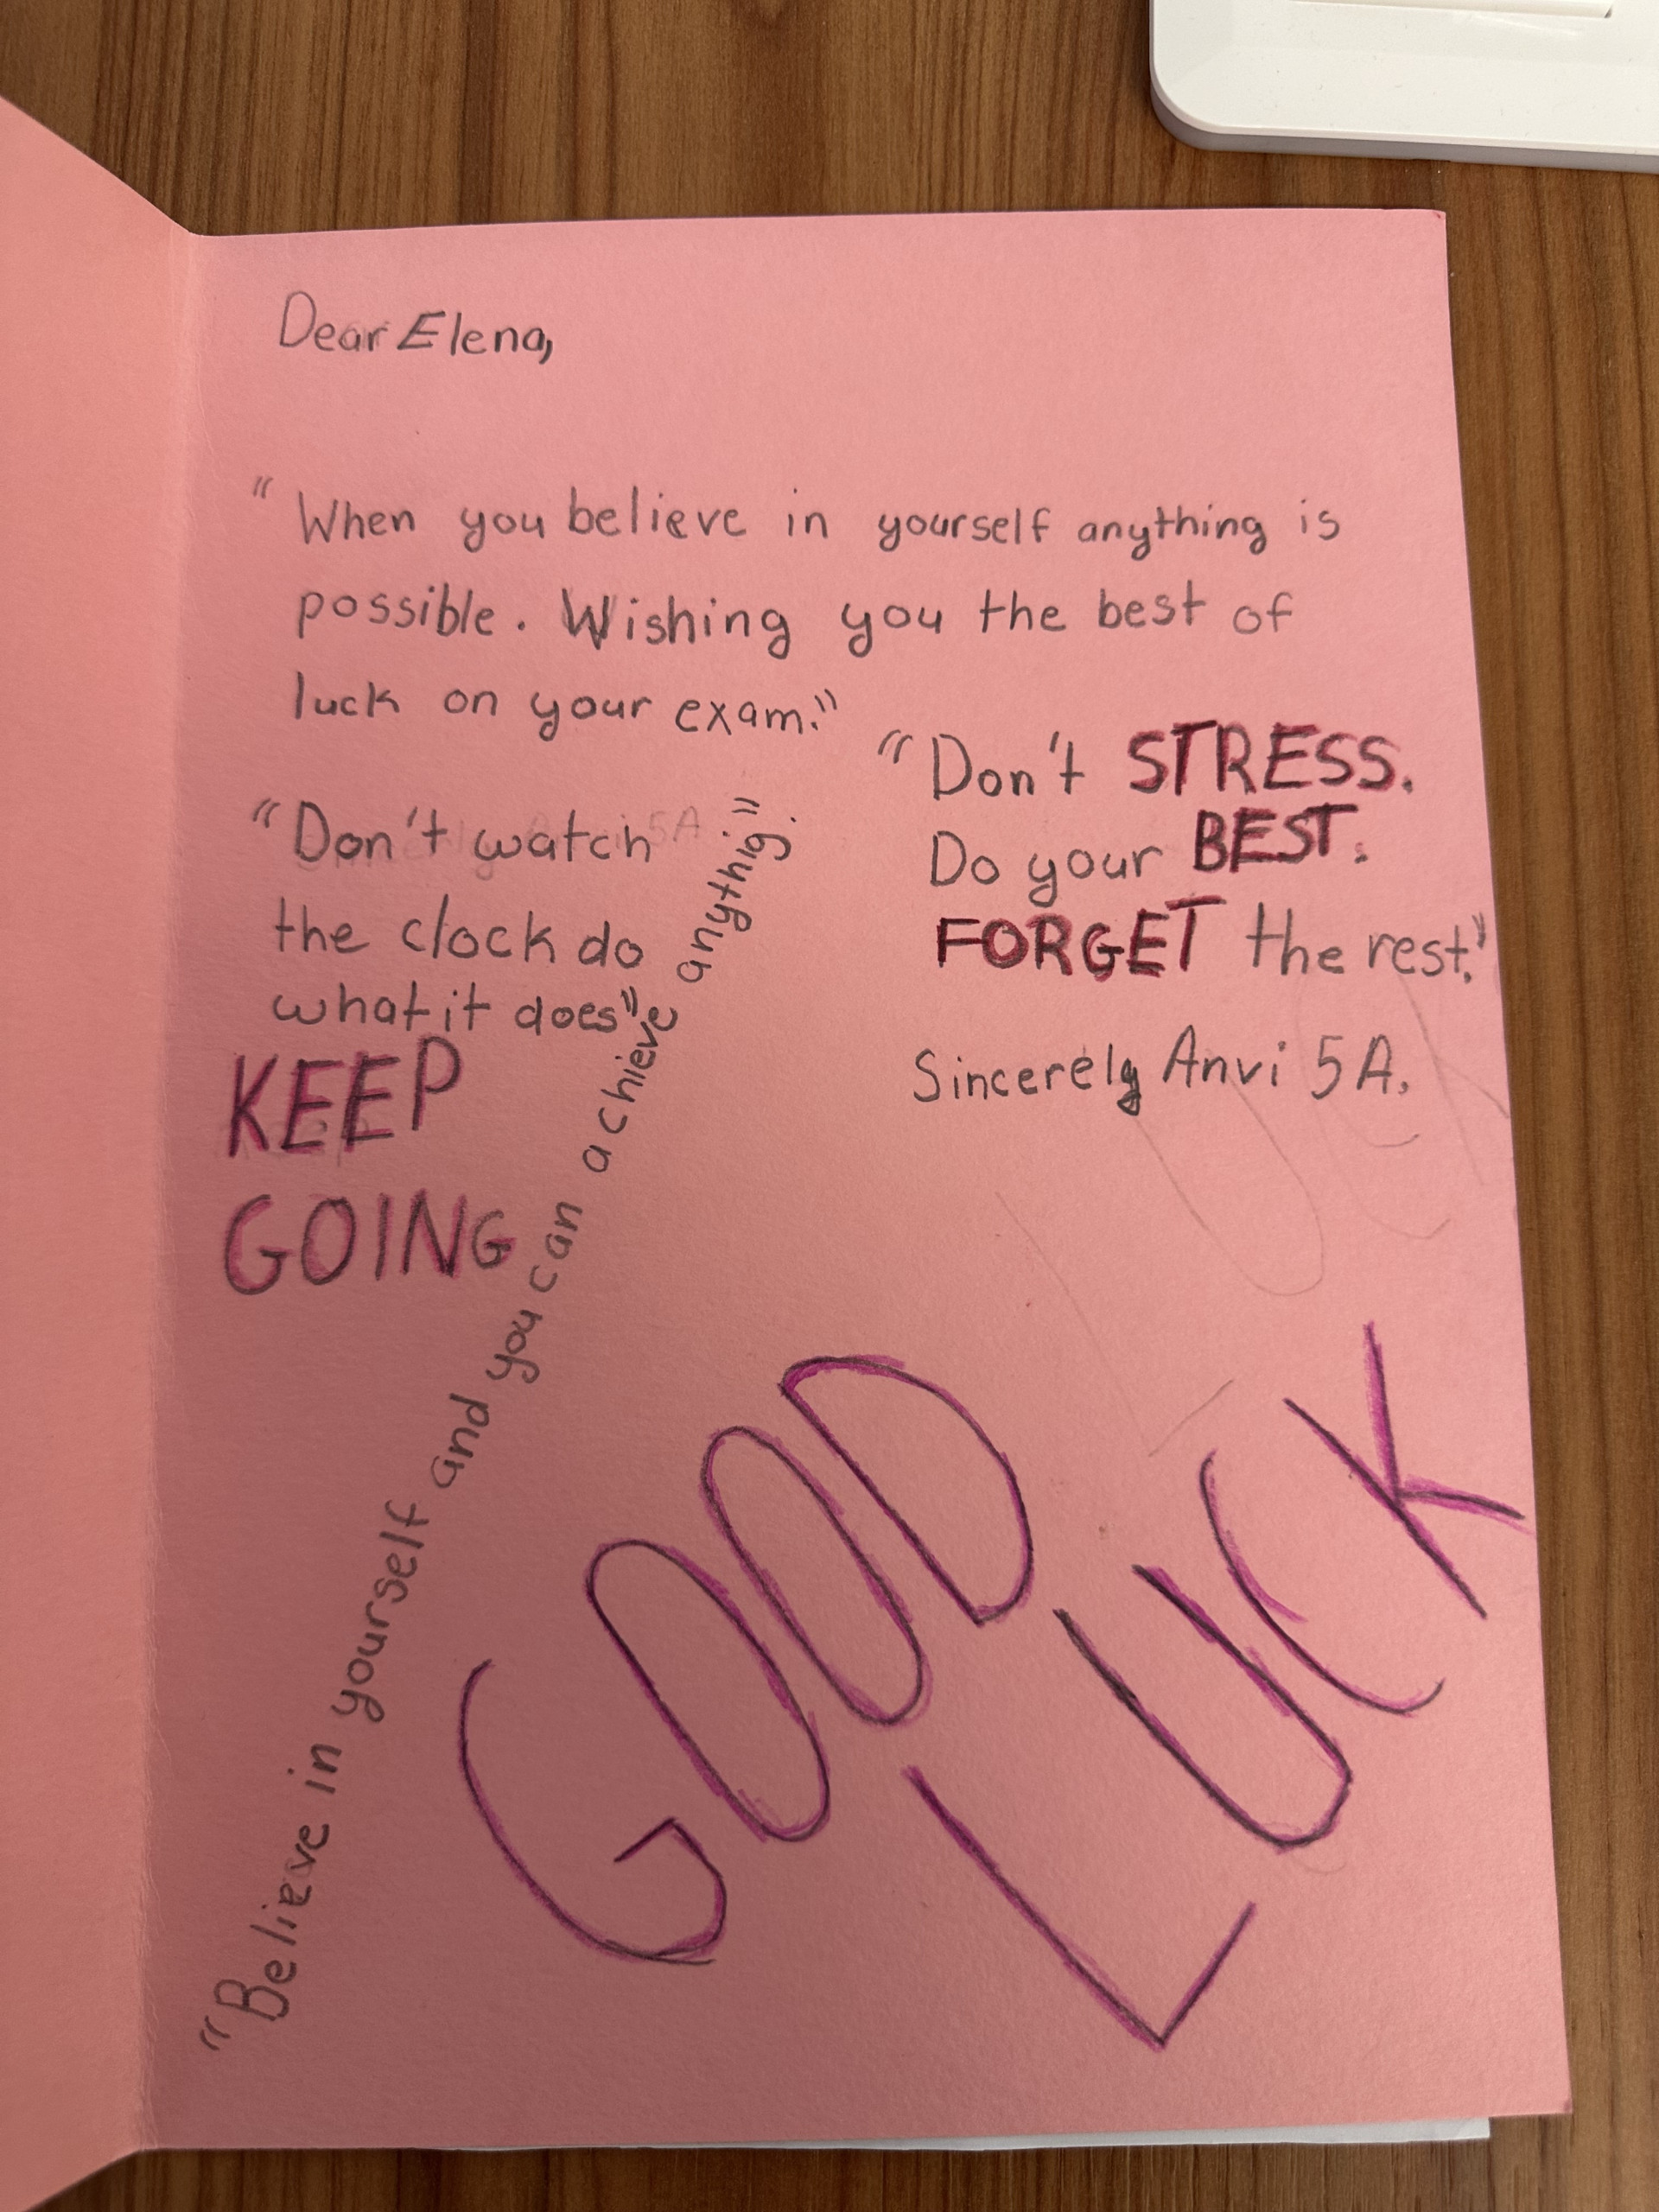 Dear Elena,
"When you believe in yourself anything is
possible. Wishing you the best of
luck on your exam."
"Don't watch
the clock do
what it does"
KEEP
GOING
"Don't STRESS.
Do your BEST.
FORGET the rest."
Sincerely Anvi 5A.
"Believe in yourself and you can achieve anythig."
GOOD
LUCK